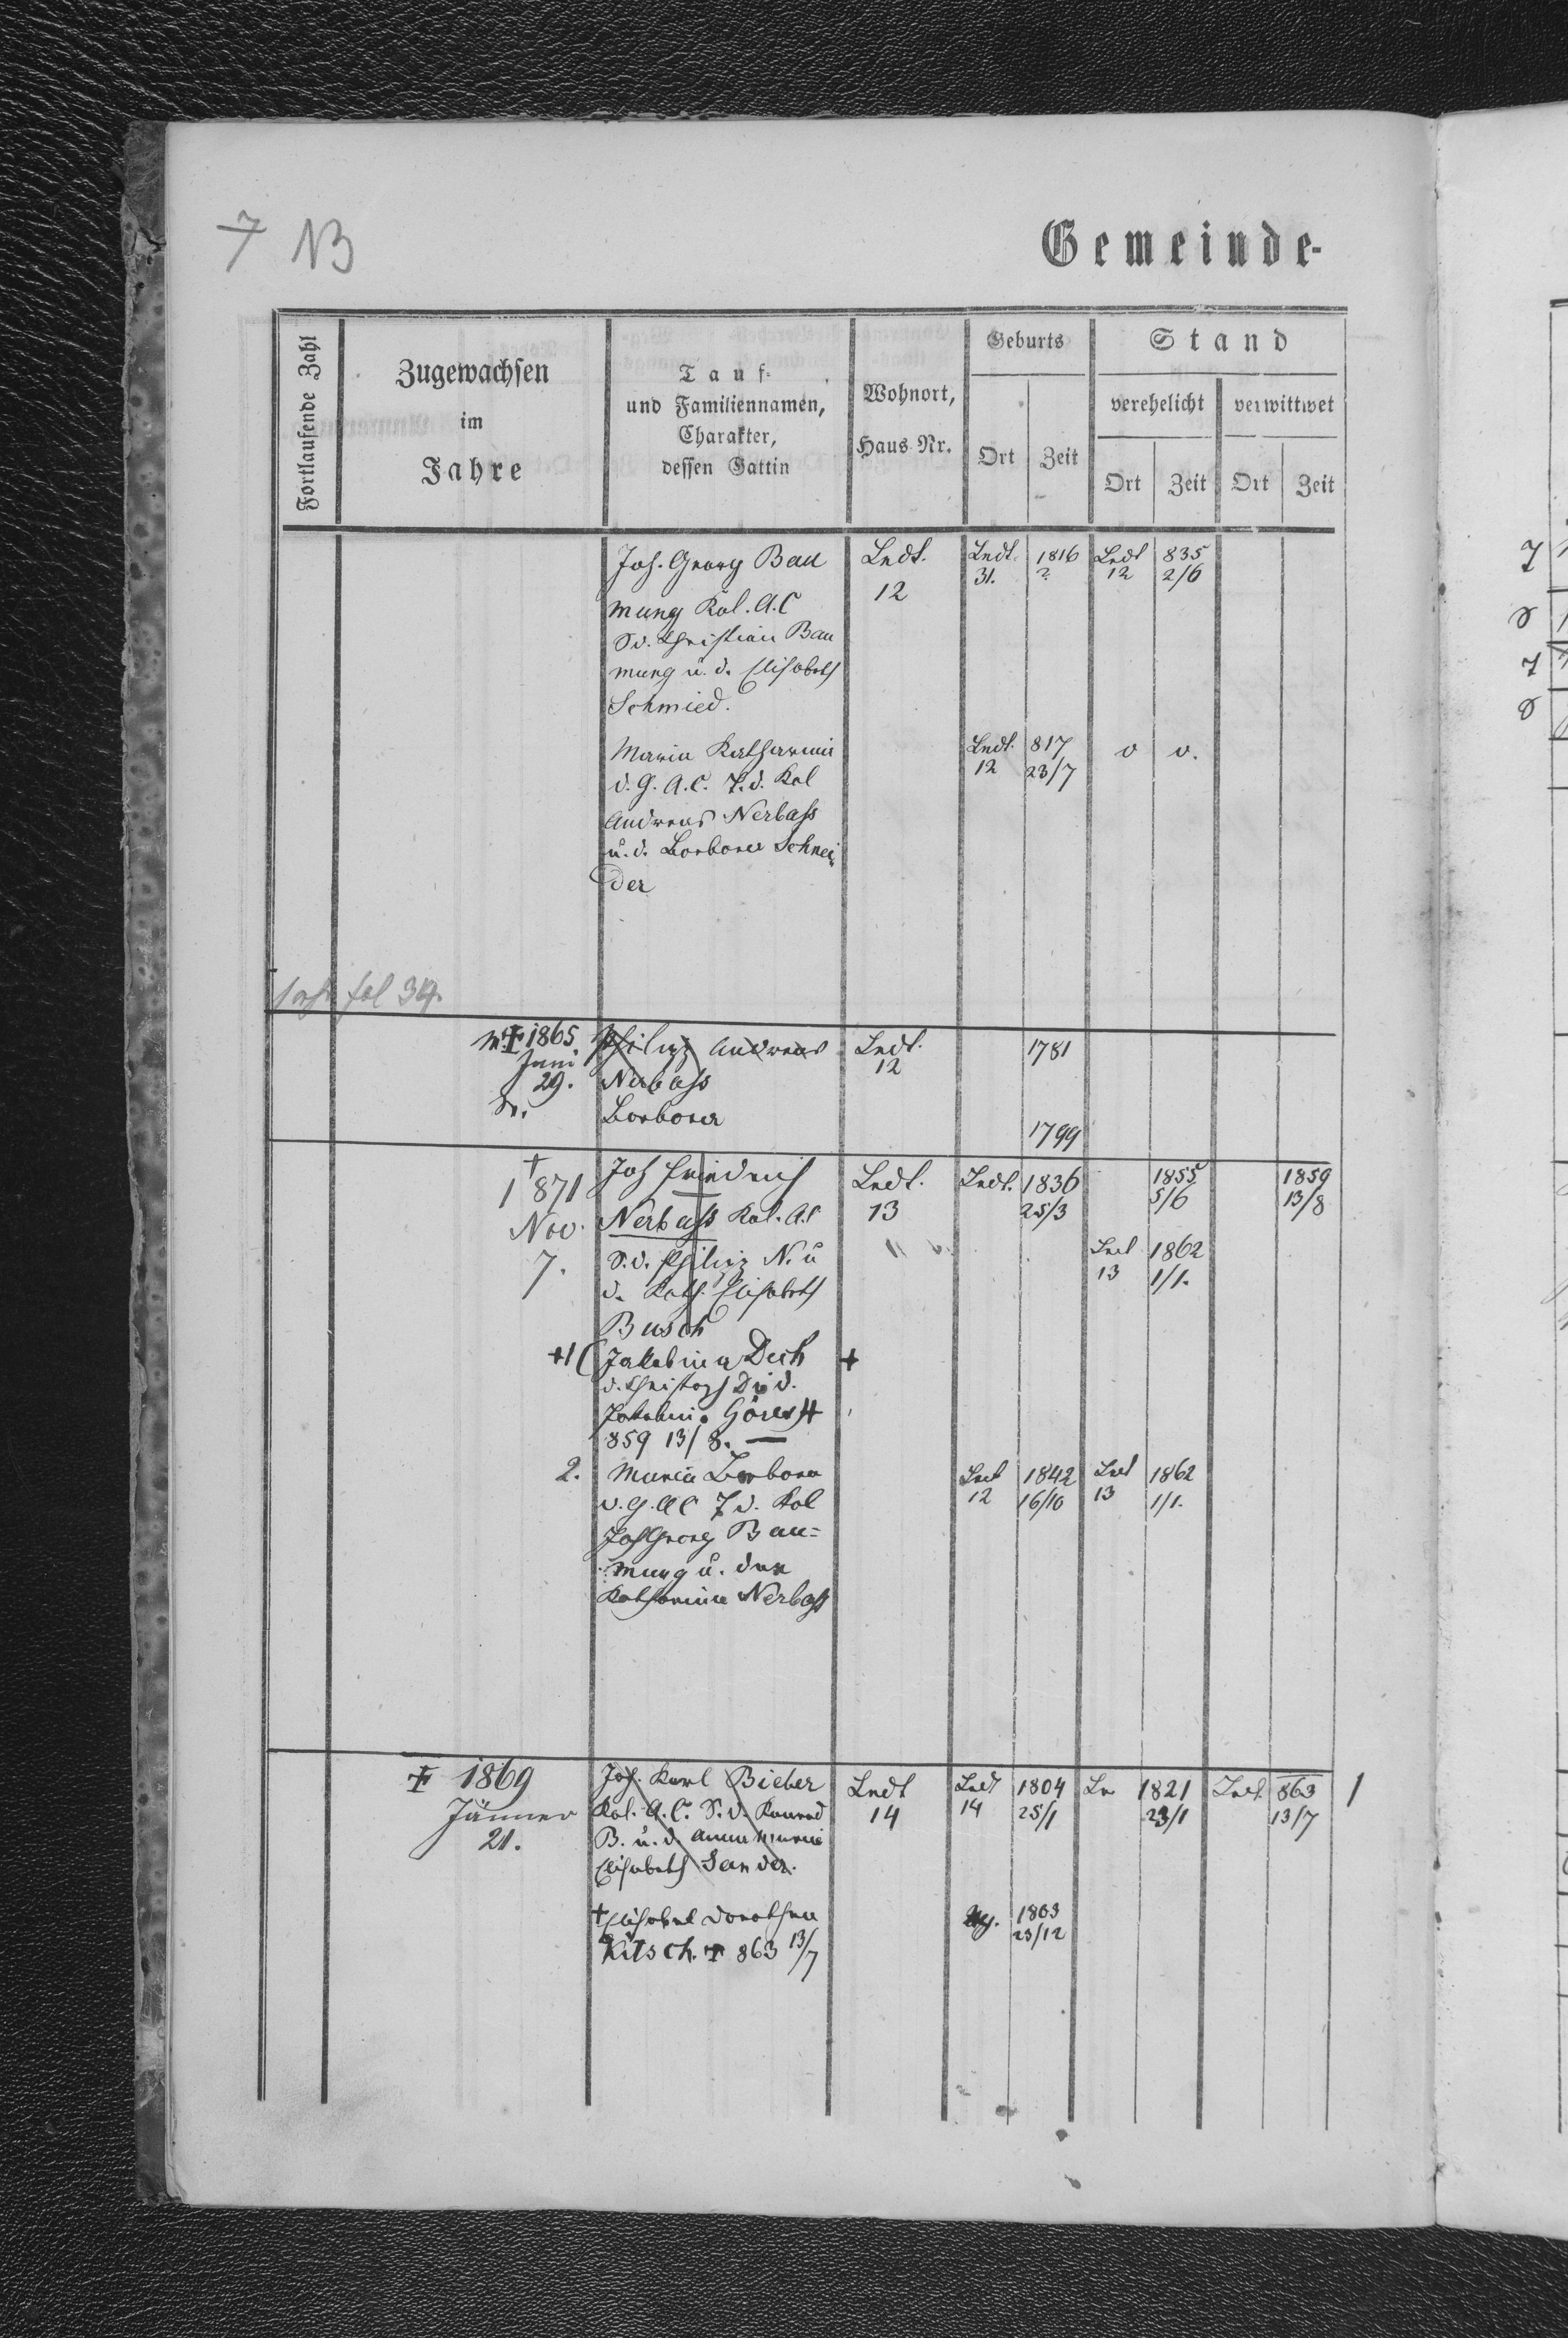 7 NB
Gemeinde-
Fortlaufende Zahl
Zugewachsen
im
Jahre
Tauf-
und Familiennamen,
Charakter,
dessen Gattin
Wohnort,
Haus Nr.
Geburts
Ort Zeit
Stand
verehelicht verwittwet
Ort Zeit Ort Zeit
Joh. Georg Bau Lndt. Lndt. 1816 Lndt 835
12 31. ? 12 2/6
mung Kol. A.C
S d. Christian Bau
mung u. d. Elisabeth
Schmied.
Maria Katharina Lndt. 817 v v.
d. G. A.C. T. d. Kol 12 23/7
Andreas Nerbass
u. d. Barbara Schnei
der
fol 34.
1865 Philipp Andreas Lndt. 1781
Juni 12
29. Nerbass
Barbara 1799
† 1871 Joh Friedrich Lndt. Lndt. 1836 1855 1859
Nov. Nerbass Kol. A.C 13 25/3 5/6 13/8
7. S. d. Philipp N. u Lnd 1862
d. Kath. Elisabeth 13 1/1.
Busch
+1( Jakobina Dech +
d. Christoph D u d.
Jakobina Göres
859 13/8. —
2. Maria Barbara Lnd 1842 Lnd 1862
d. G. AC T d. Kol 12 16/10 13 1/1.
Joh Georg Bau=
mung u. der
Katharina Nerbass
† 1869 Joh. Karl Bieber Lndt Lndt 1804 Ln 1821 Lndt. 863 1
Jänner Kol. A.C. S. d. Konrad 14 14 25/1 23/1 13/7
21. B. u. d. Anna Maria
Elisabeth Sander.
† Elisabet Dorothea 1803
Kitsch. † 863 13/7 23/12